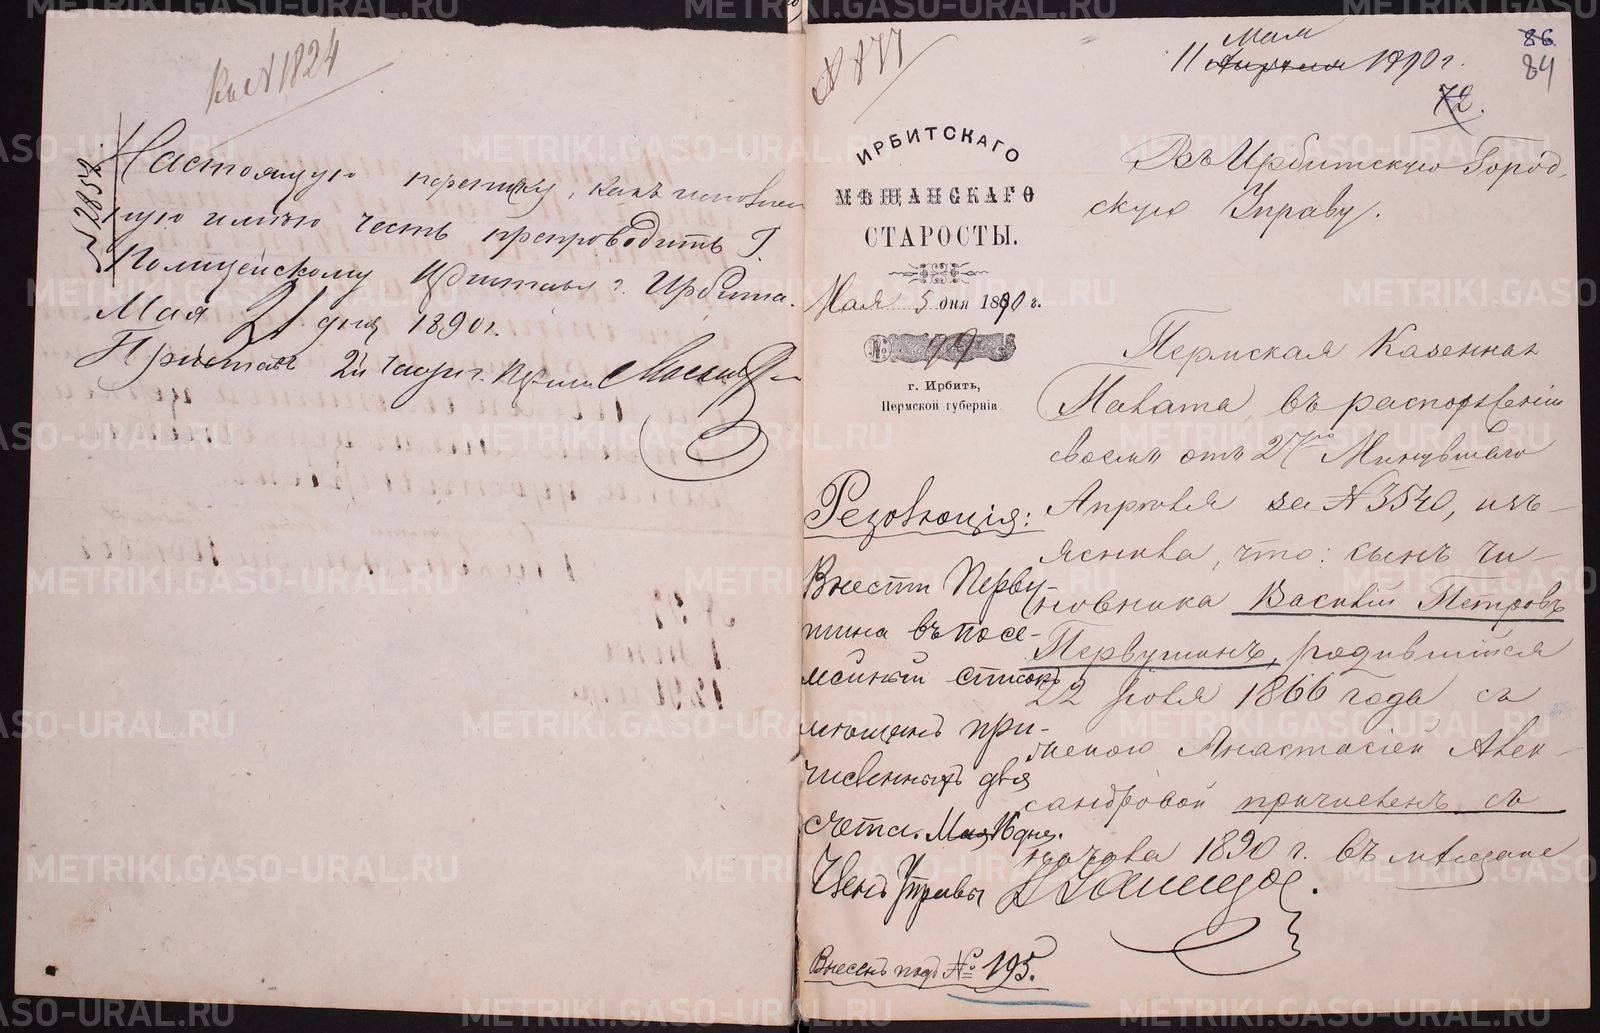 Къ № 1824
№ 2852
Настоящую переписку, какъ исполнен
ную имѣю честь препроводить Г.
Полицейскому Приставу г. Ирбита.
Мая 21 дня 1890 г.
Приставъ 2й части г.
№ 877
11 Мая Апрѣля 1890 г.
86
84
72.
ИРБИТСКАГО
МѢЩАНСКАГО
СТАРОСТЫ.
Мая 5 дня 1890 г.
№ 99
г. Ирбитъ,
Пермской губерніи
Въ Ирбитскую Город
скую Управу.
Пермская Казенная
Палата, въ распоряженіи
своемъ отъ 27го Минувшаго
Апрѣля за № 3540, изъ-
яснила, что: сынъ чи-
новника Василій Петровъ
Первушинъ, родившійся
22 1866 года съ
женою Анастасіей Алек-
сандровой причисленъ съ
начала 1890 г. въ мѣщане
Резолюція:
Внести Перву-
шина въ посе-
мейный списокъ
мѣщанъ при-
численныхъ для
счета. Мая 16 дня.
Членъ Управы
Внесенъ подъ № 195.
METRIKI.GASO-URAL.RU